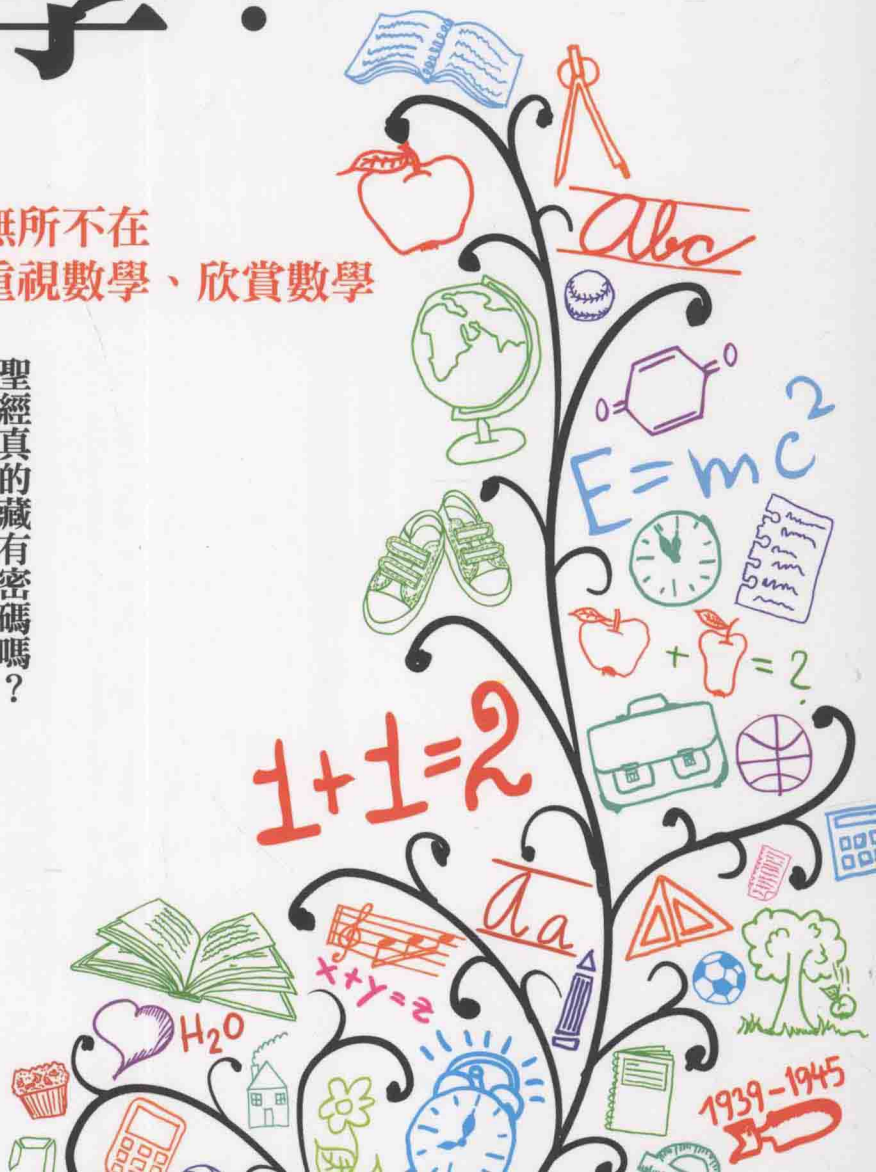 學：
無所不在
重視數學、欣賞數學
聖經真的藏有密碼嗎？
abc
E=mc²
+ = ?
1+1=2
a a
x+y=z
H₂O
1939-1945